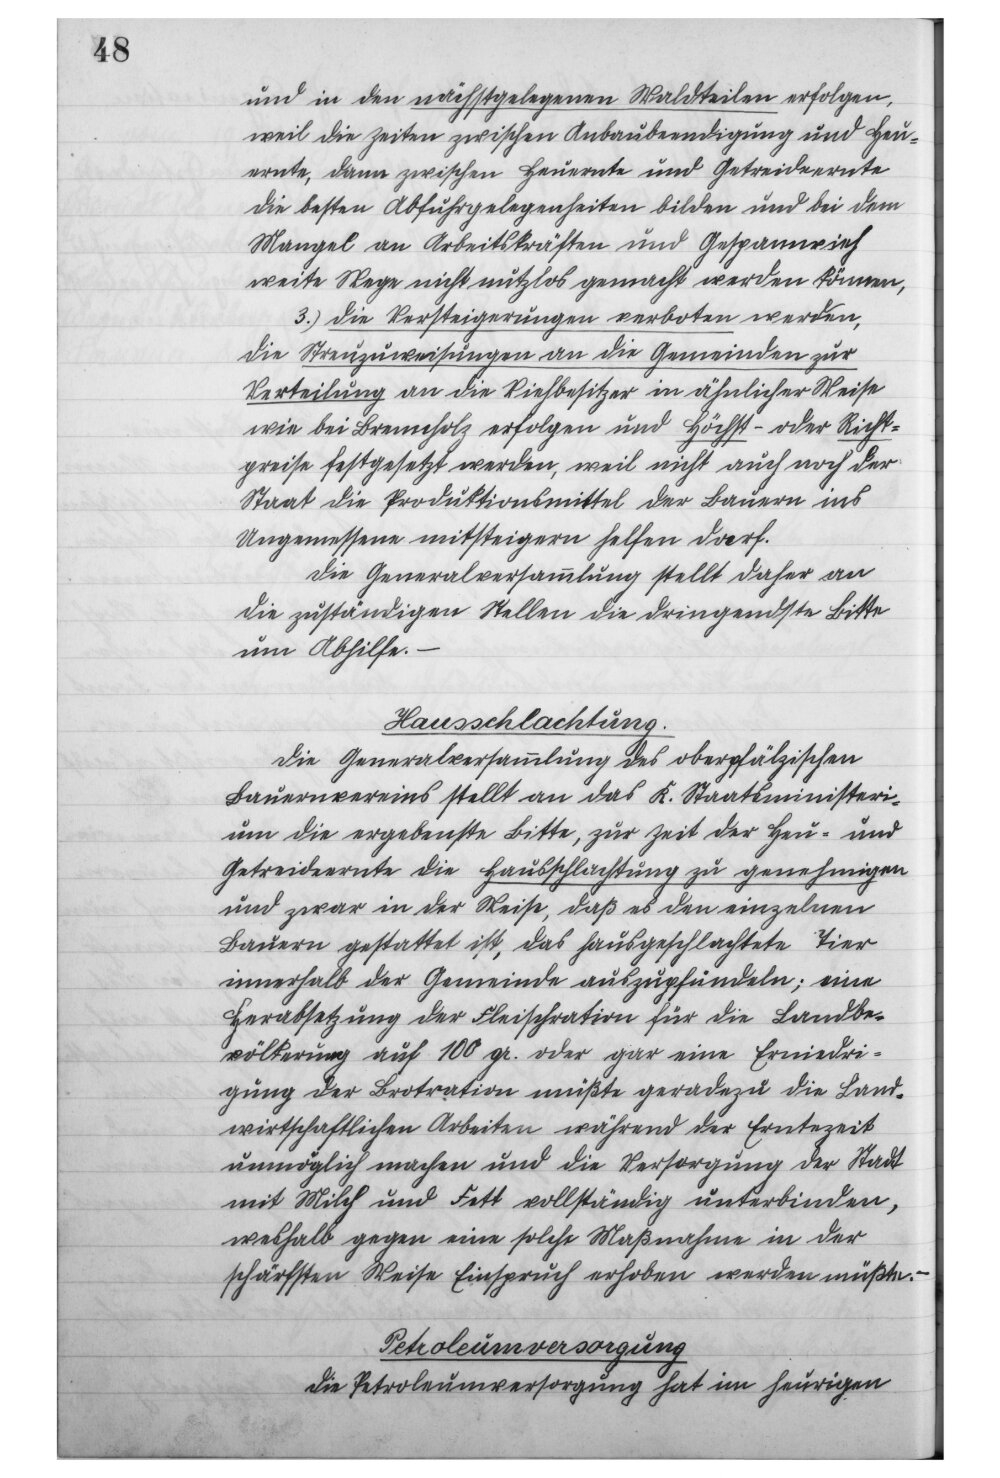 48
und in den nächstgelegenen Waldteilen erfolgen,
weil die Zeiten zwischen Anbaubeendigung und Heu-
ernte, dann zwischen Heuernte und Getreideernte
die besten Abfuhrgelegenheiten bilden und bei dem
Mangel an Arbeitskräften und Gespannvieh
weite Wege nicht nutzlos gemacht werden können,
3.) die Versteigerungen verboten werden,
die Streuzuweisungen an die Gemeinden zur
Verteilung an die Viehbesitzer in ähnlicher Weise
wie bei Brennholz erfolgen und Höchst- oder Richt-
preise festgesetzt werden, weil nicht auch noch der
Staat die Produktionsmittel der Bauern ins
Ungemessene mitsteigern helfen darf.
Die Generalversam̅lung stellt daher an
die zuständigen Stellen die dringendste Bitte
um Abhilfe. —
Hausschlachtung.
Die Generalversam̅lung des oberpfälzischen
Bauernvereins stellt an das K. Staatsministeri-
um die ergebenste Bitte, zur Zeit der Heu- und
Getreideernte die Hausschlachtung zu genehmigen
und zwar in der Weise, daß es den einzelnen
Bauern gestattet ist, das hausgeschlachtete Tier
innerhalb der Gemeinde auszupfündeln; eine
Herabsetzung der Fleischration für die Landbe-
völkerung auf 100 gr. oder gar eine Erniedri-
gung der Brotration müßte geradezu die Land-
wirtschaftlichen Arbeiten während der Erntezeit
unmöglich machen und die Versorgung der Stadt
mit Milch und Fett vollständig unterbinden,
weshalb gegen eine solche Maßnahme in der
schärfsten Weise Einspruch erhoben werden müßte. —
Petroleumversorgung
Die Petroleumversorgung hat im heurigen